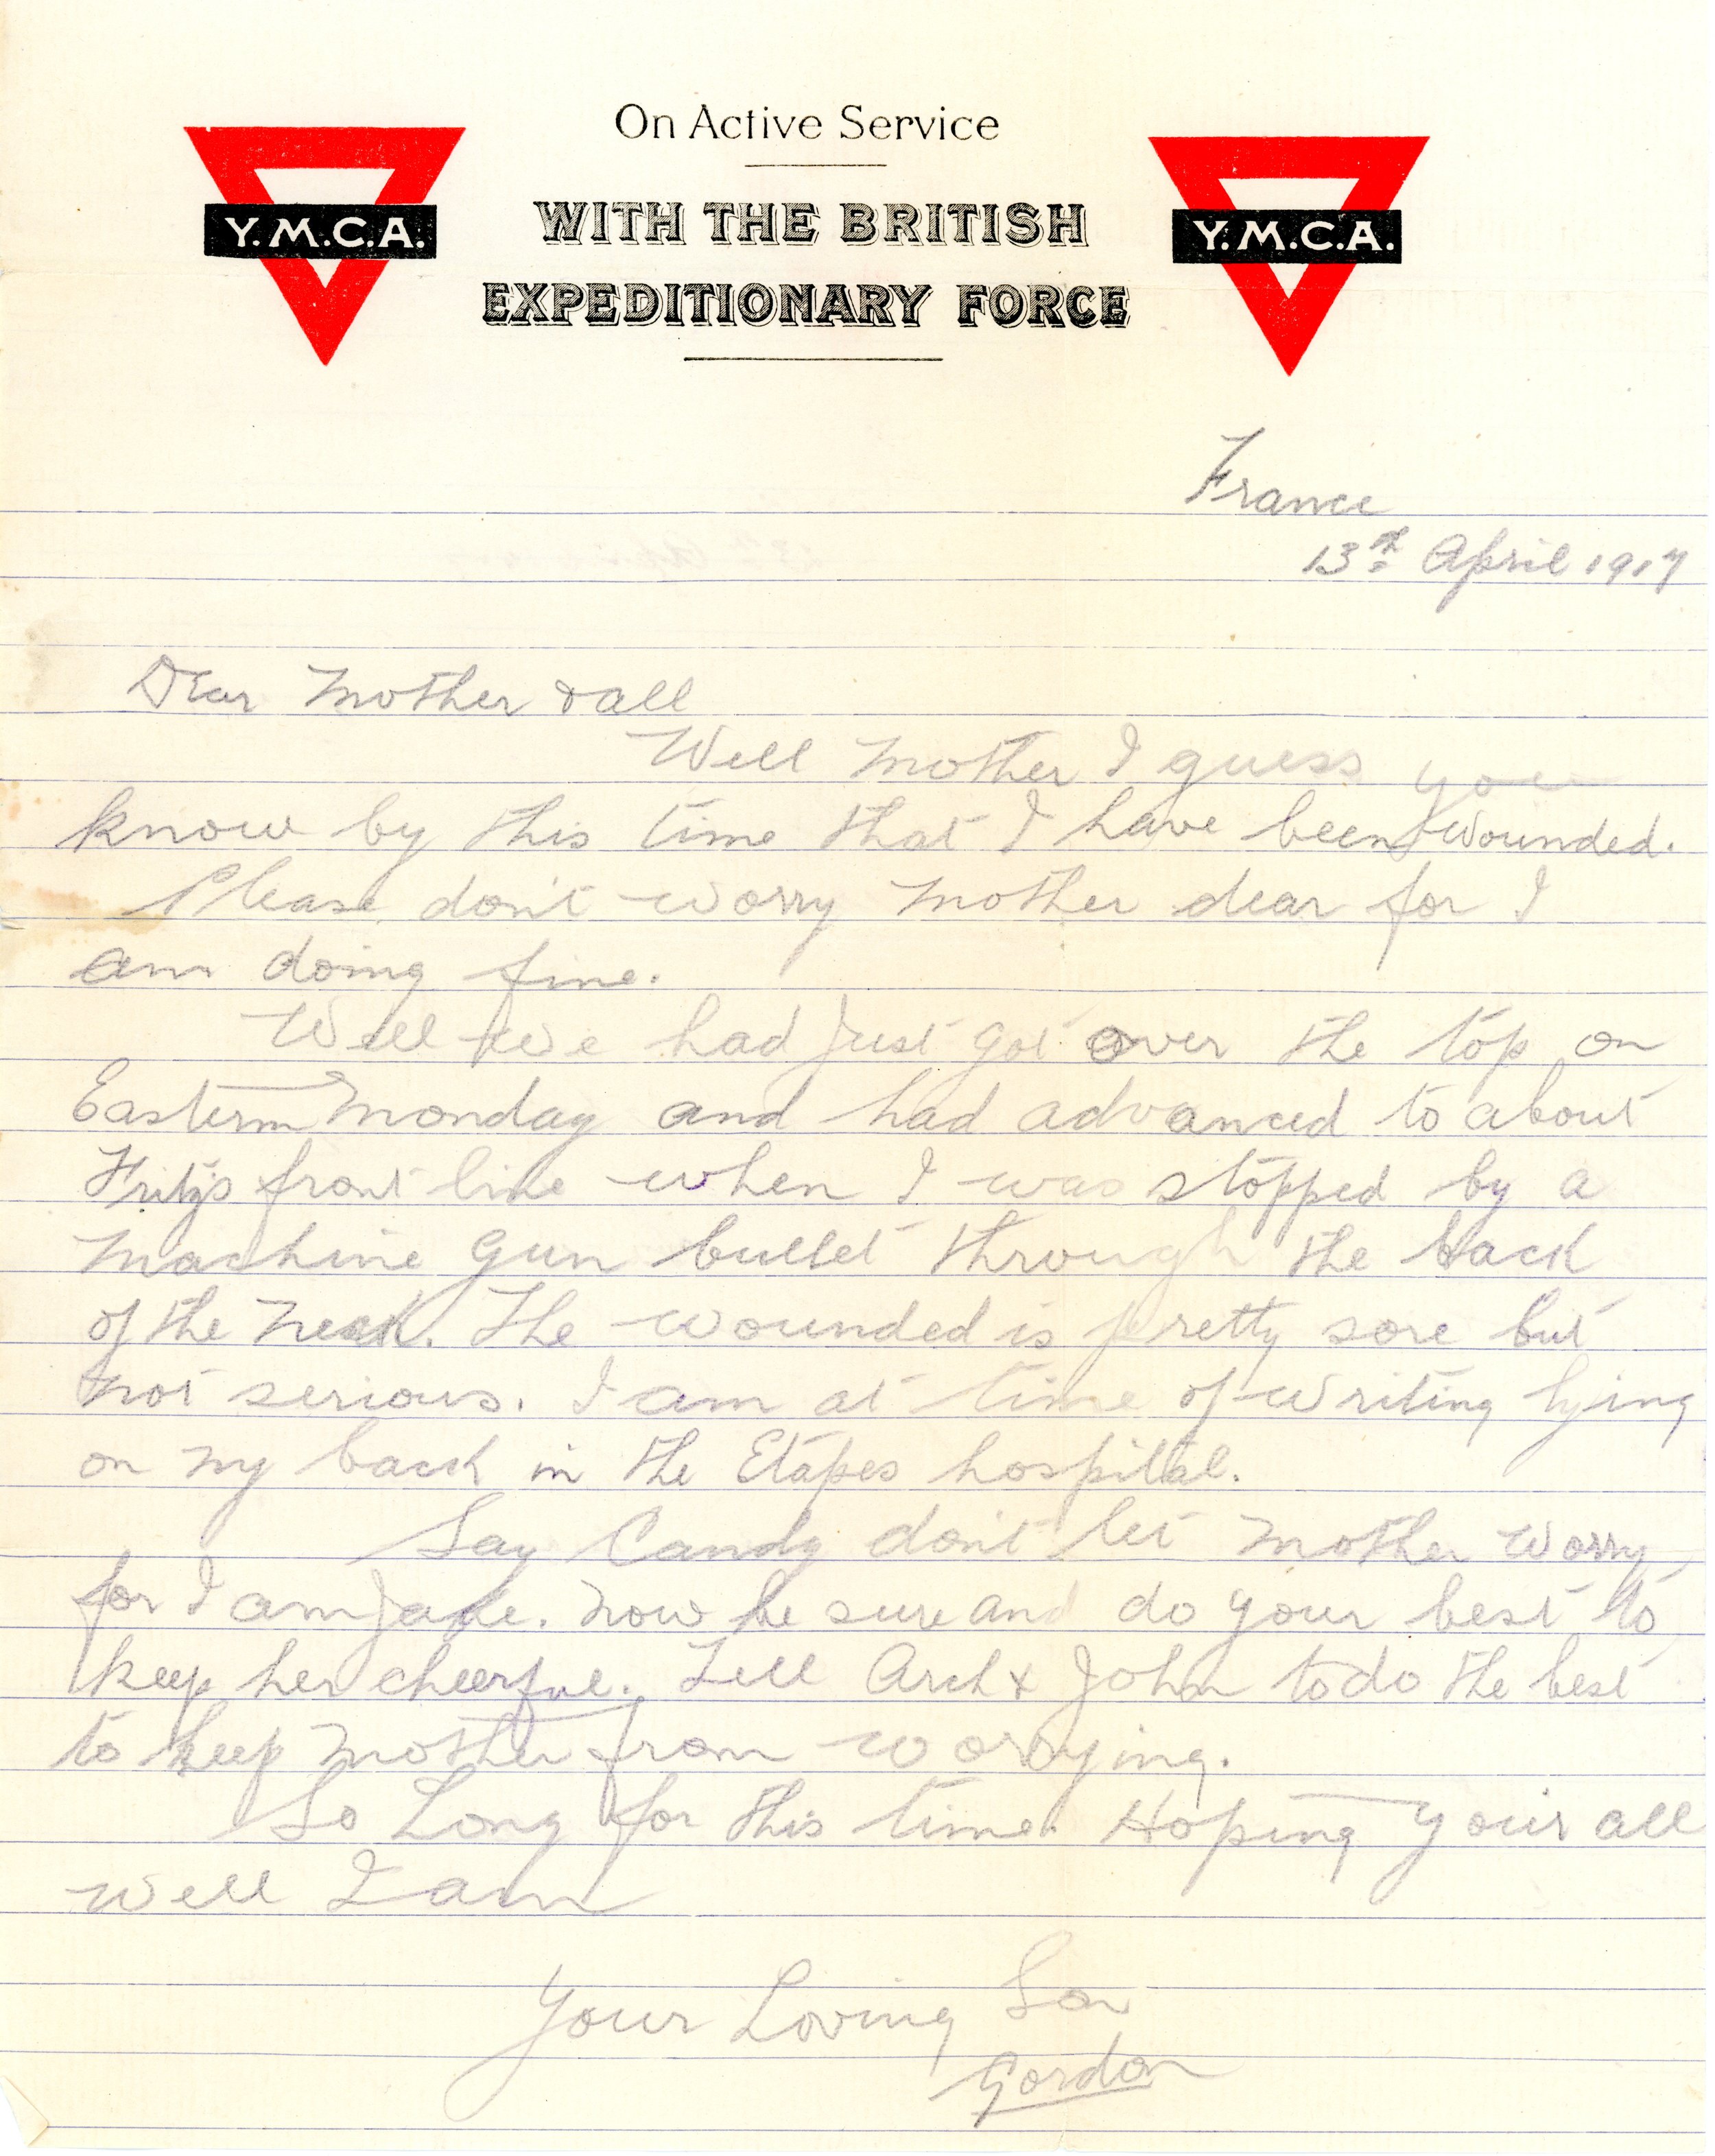 On Active Service
WITH THE BRITISH
EXPEDITIONARY FORCE
Y.M.C.A.
Y.M.C.A.
France
13th April 1917
Dear Mother & all
Well Mother I guess you
know by this time that I have been wounded.
Please don't worry Mother dear for I
am doing fine.
Well we had just got over the top on
Eastern Monday and had advanced to about
Fritz's front line when I was stopped by a
Machine Gun bullet through the back
of the neck. The wounded is pretty sore but
not serious. I am at time of writing lying
on my back in the Etapes hospital.
Say Candy don't let Mother worry
for I am jake. Now be sure and do your best to
keep her cheerful. Tell Arch & John to do the best
to keep Mother from worrying.
So Long for this time. Hoping your all
well I am
Your Loving Son
Gordon